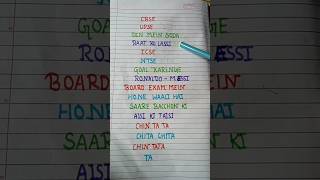 CBSE
UPSE
DIN MEIN SODA
RAAT KO LASSI
ICSE
NTSE
GOAL KARENGE
RONALDO - MESSI
BOARD EXAM MEIN
HO.NE WAALI HAI
SAARE BACCHON KI
AISI KI TAISI
CHIN TA TA
CHITA CHITA
CHIN TATA
TA